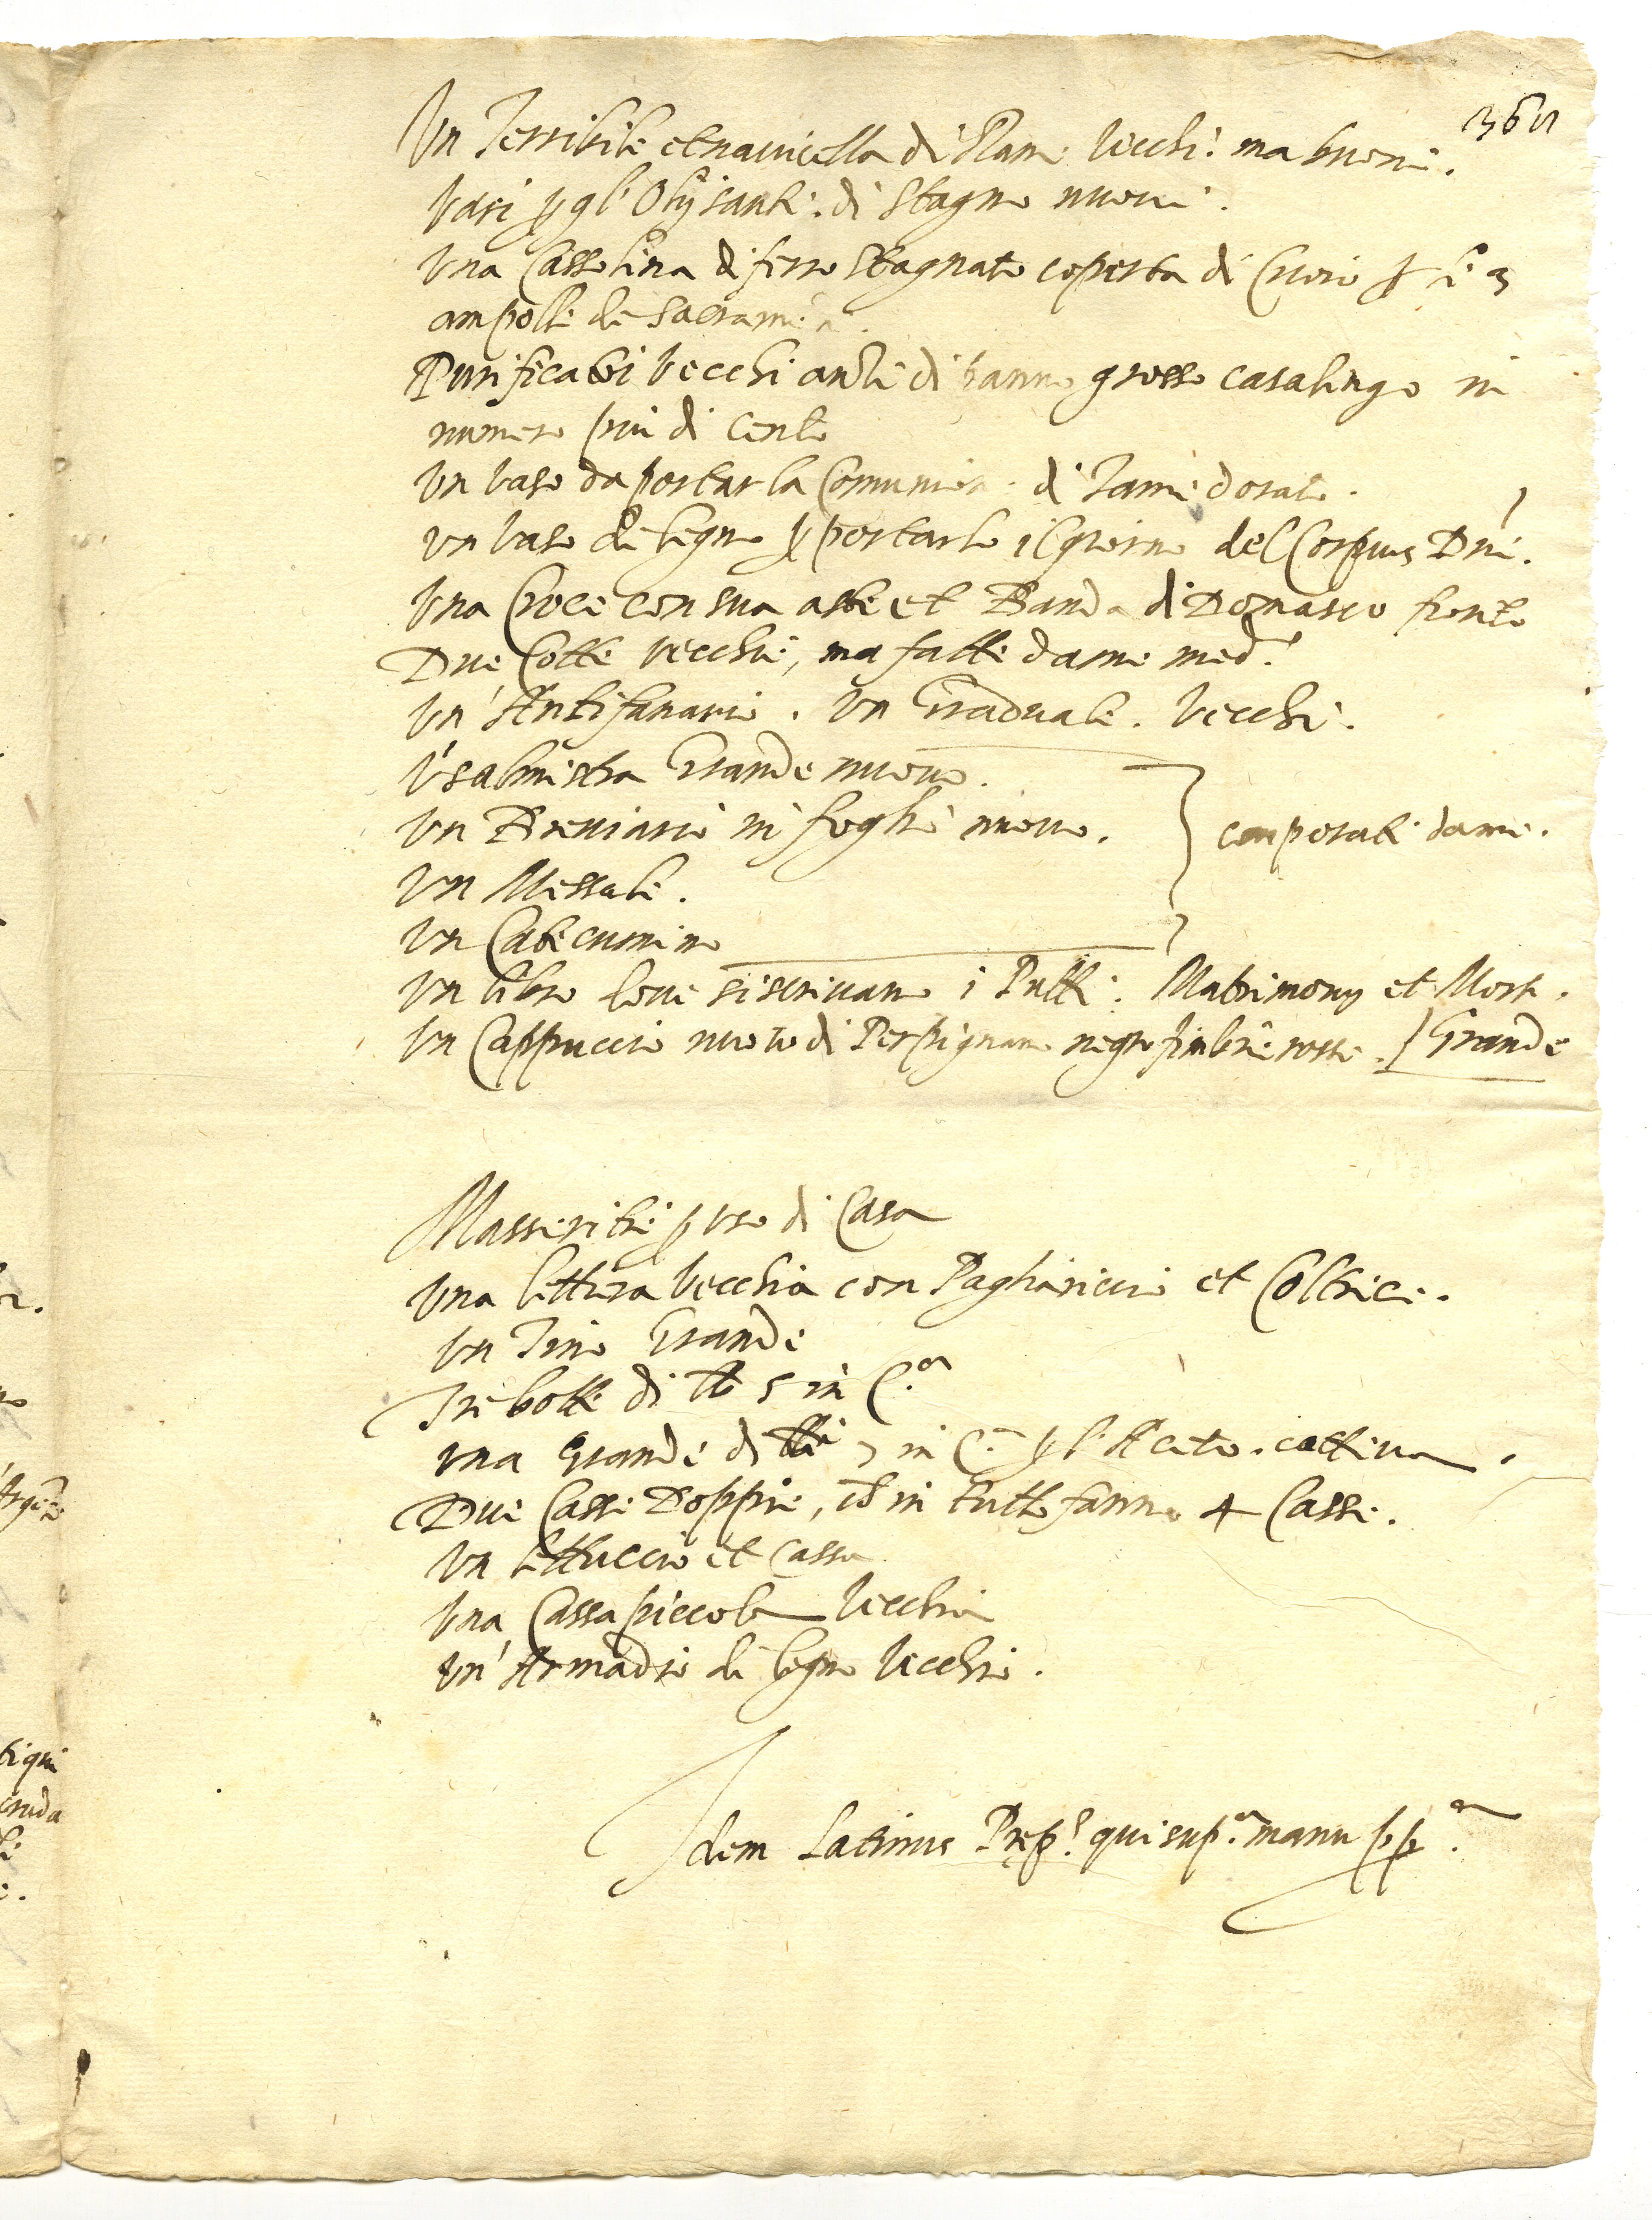 Un Terribile et navicella di Rame vecchi: ma buoni.
Vasi p gl' Olij santi. di stagno nuovi.
Una Cassetina di ferro stagnato coperta di Cuoio p le 3
ampolle de Sacramen
Purificatoi vecchi anche di panno grosso casalingo in
numero piu di Cento
Un vaso da portar la Comunion di rame dorato.
un vaso di legno p portarlo il giorno del Corpus Dni.
Una Croce con sua aste et Banda di Domasco fiorito
Due Cotte vecchie, ma fatte da me med.
Un' Antifanario. Un Graduale. Vecchi.
Un Breviario in foglio nuovo.
comperati da me.
Un Messale.
Un Catecumino
Un libro dove si scrivano i Putti: Matrimony et Morti.
Un Cappuccio nuovo di Perpignano negro fimbrie rosse. Grande
Masseritie p uso di Casa
Una lettiera vecchia con Pagliariccio et Coltrice.
Un Tino Grande
Tre botte di 5 in C.a
una Grande di in C.a p l' Aceto. cattiva.
Due Casse Doppie, ch in tutto fanno 4 Casse.
Un lettuccio et cassa
Una Cassa piccola Vecchia
Un' Armadio di legno Vecchio.
Idem Latinus Prep.s qui sup.a manu pp.a